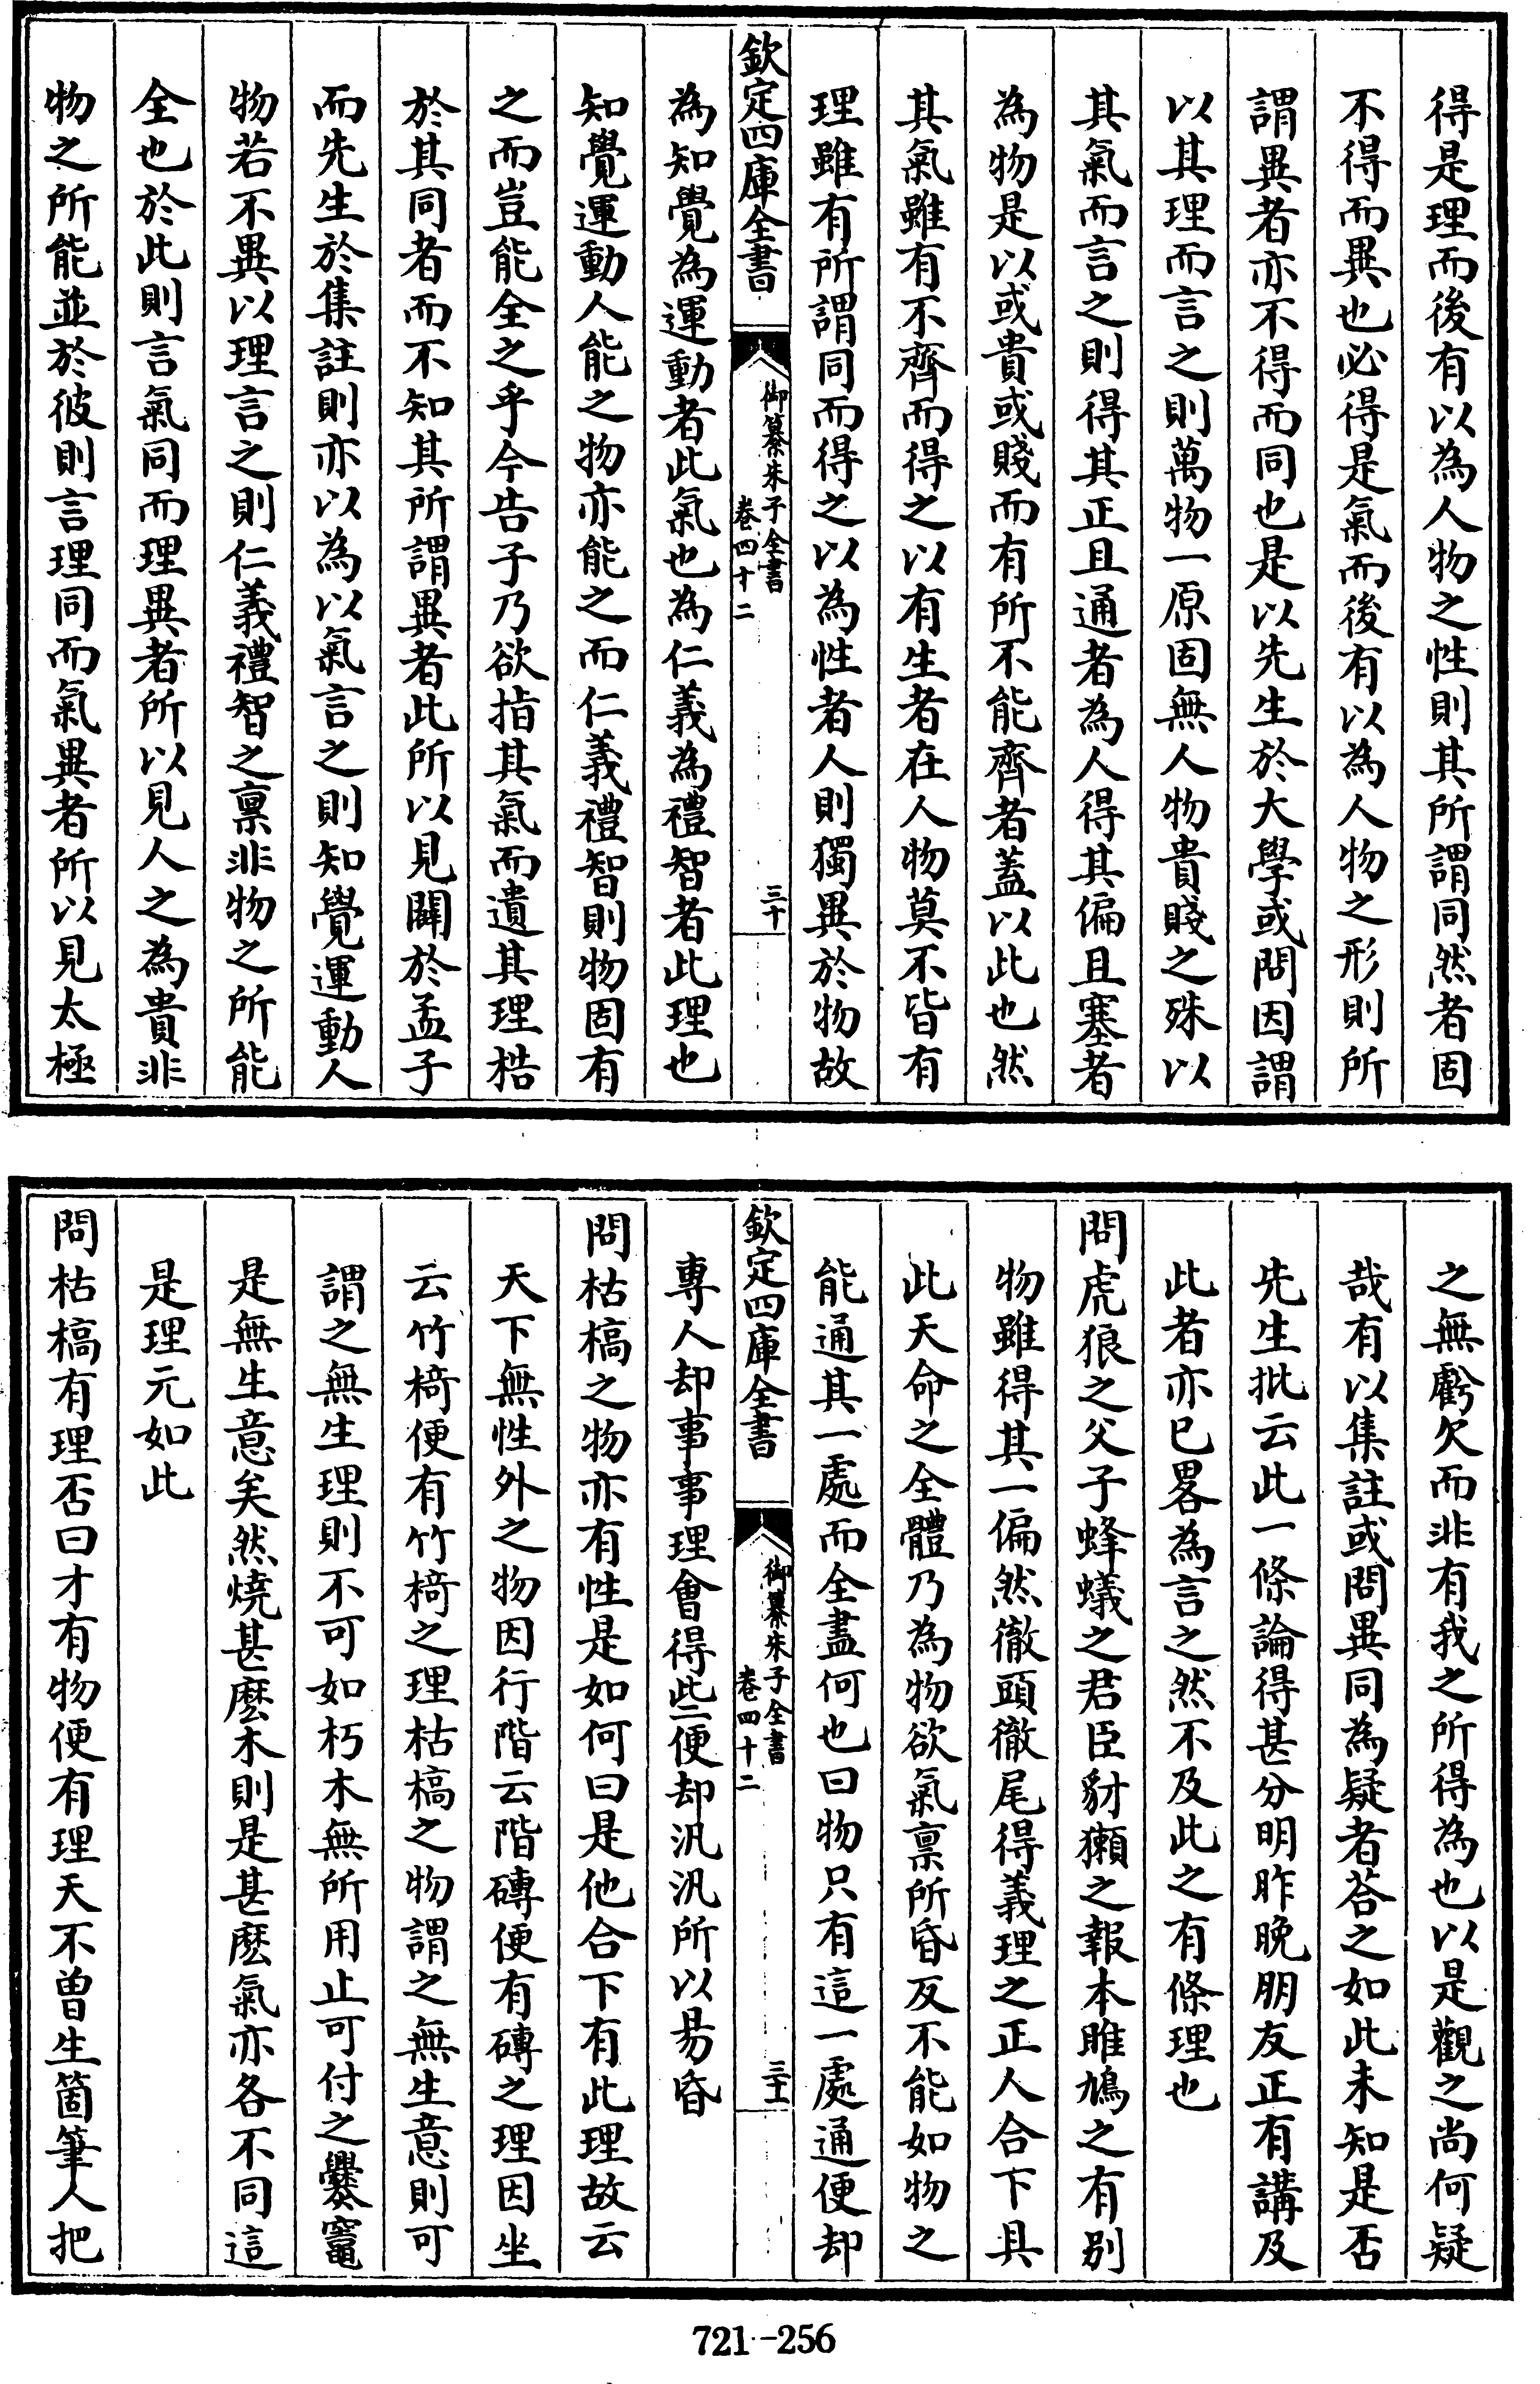 得是理而後有以為人物之性則其所謂同然者固
不得而異也必得是氣而後有以為人物之形則所
謂異者亦不得而同也是以先生於大學或問因謂
以其理而言之則萬物一原固無人物貴賤之殊以
其氣而言之則得其正且通者為人得其偏且塞者
為物是以或貴或賤而有所不能齊者蓋以此也然
其氣雖有不齊而得之以有生者在人物莫不皆有
理雖有所謂同而得之以為性者人則獨異於物故
欽定四庫全書
御纂朱子全書
卷四十二
三十
為知覺為運動者此氣也為仁義為禮智者此理也
知覺運動人能之物亦能之而仁義禮智則物固有
之而豈能全之乎今告子乃欲指其氣而遺其理梏
於其同者而不知其所謂異者此所以見闢於孟子
而先生於集註則亦以為以氣言之則知覺運動人
物若不異以理言之則仁義禮智之稟非物之所能
全也於此則言氣同而理異者所以見人之為貴非
物之所能並於彼則言理同而氣異者所以見太極
之無虧欠而非有我之所得為也以是觀之尚何疑
哉有以集註或問異同為疑者荅之如此未知是否
先生批云此一條論得甚分明昨晚朋友正有講及
此者亦已畧為言之然不及此之有條理也
問虎狼之父子蜂蟻之君臣豺獺之報本雎鳩之有别
物雖得其一偏然徹頭徹尾得義理之正人合下具
此天命之全體乃為物欲氣稟所昏反不能如物之
能通其一處而全盡何也曰物只有這一處通便却
欽定四庫全書
御纂朱子全書
卷四十二
三十一
專人却事事理會得些便却汎汎所以易昏
問枯槁之物亦有性是如何曰是他合下有此理故云
天下無性外之物因行階云階磚便有磚之理因坐
云竹椅便有竹椅之理枯槁之物謂之無生意則可
謂之無生理則不可如朽木無所用止可付之爨竈
是無生意矣然燒甚麽木則是甚麽氣亦各不同這
是理元如此
問枯槁有理否曰才有物便有理天不曾生箇筆人把
721-256